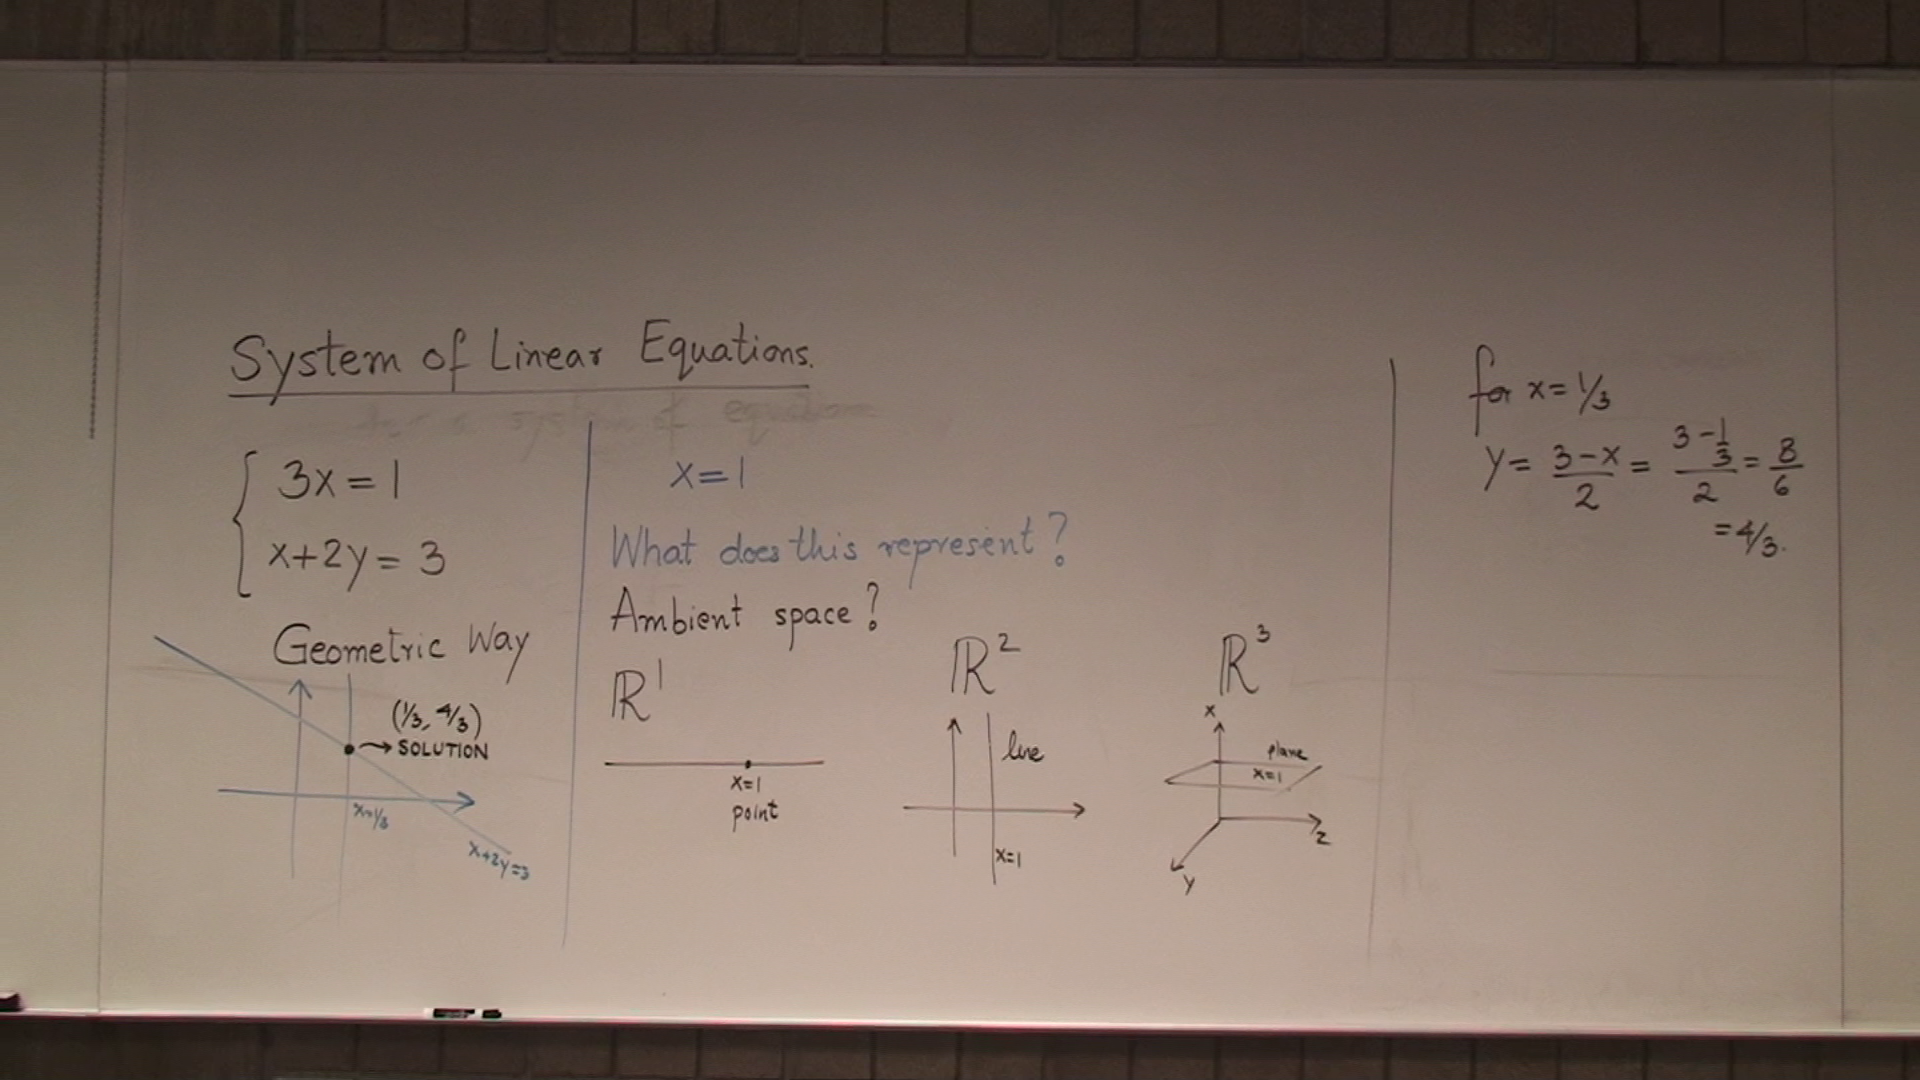 System of Linear Equations.
3x = 1
x+2y = 3
Geometric Way
(1/3, 4/3)
→ SOLUTION
x=1/3
x+2y=3
x=1
What does this represent?
Ambient space?
ℝ¹
x=1
point
ℝ²
line
x=1
ℝ³
x
plane
x=1
z
y
for x=1/3
y = (3-x)/2 = (3-1/3)/2 = 8/6
= 4/3.